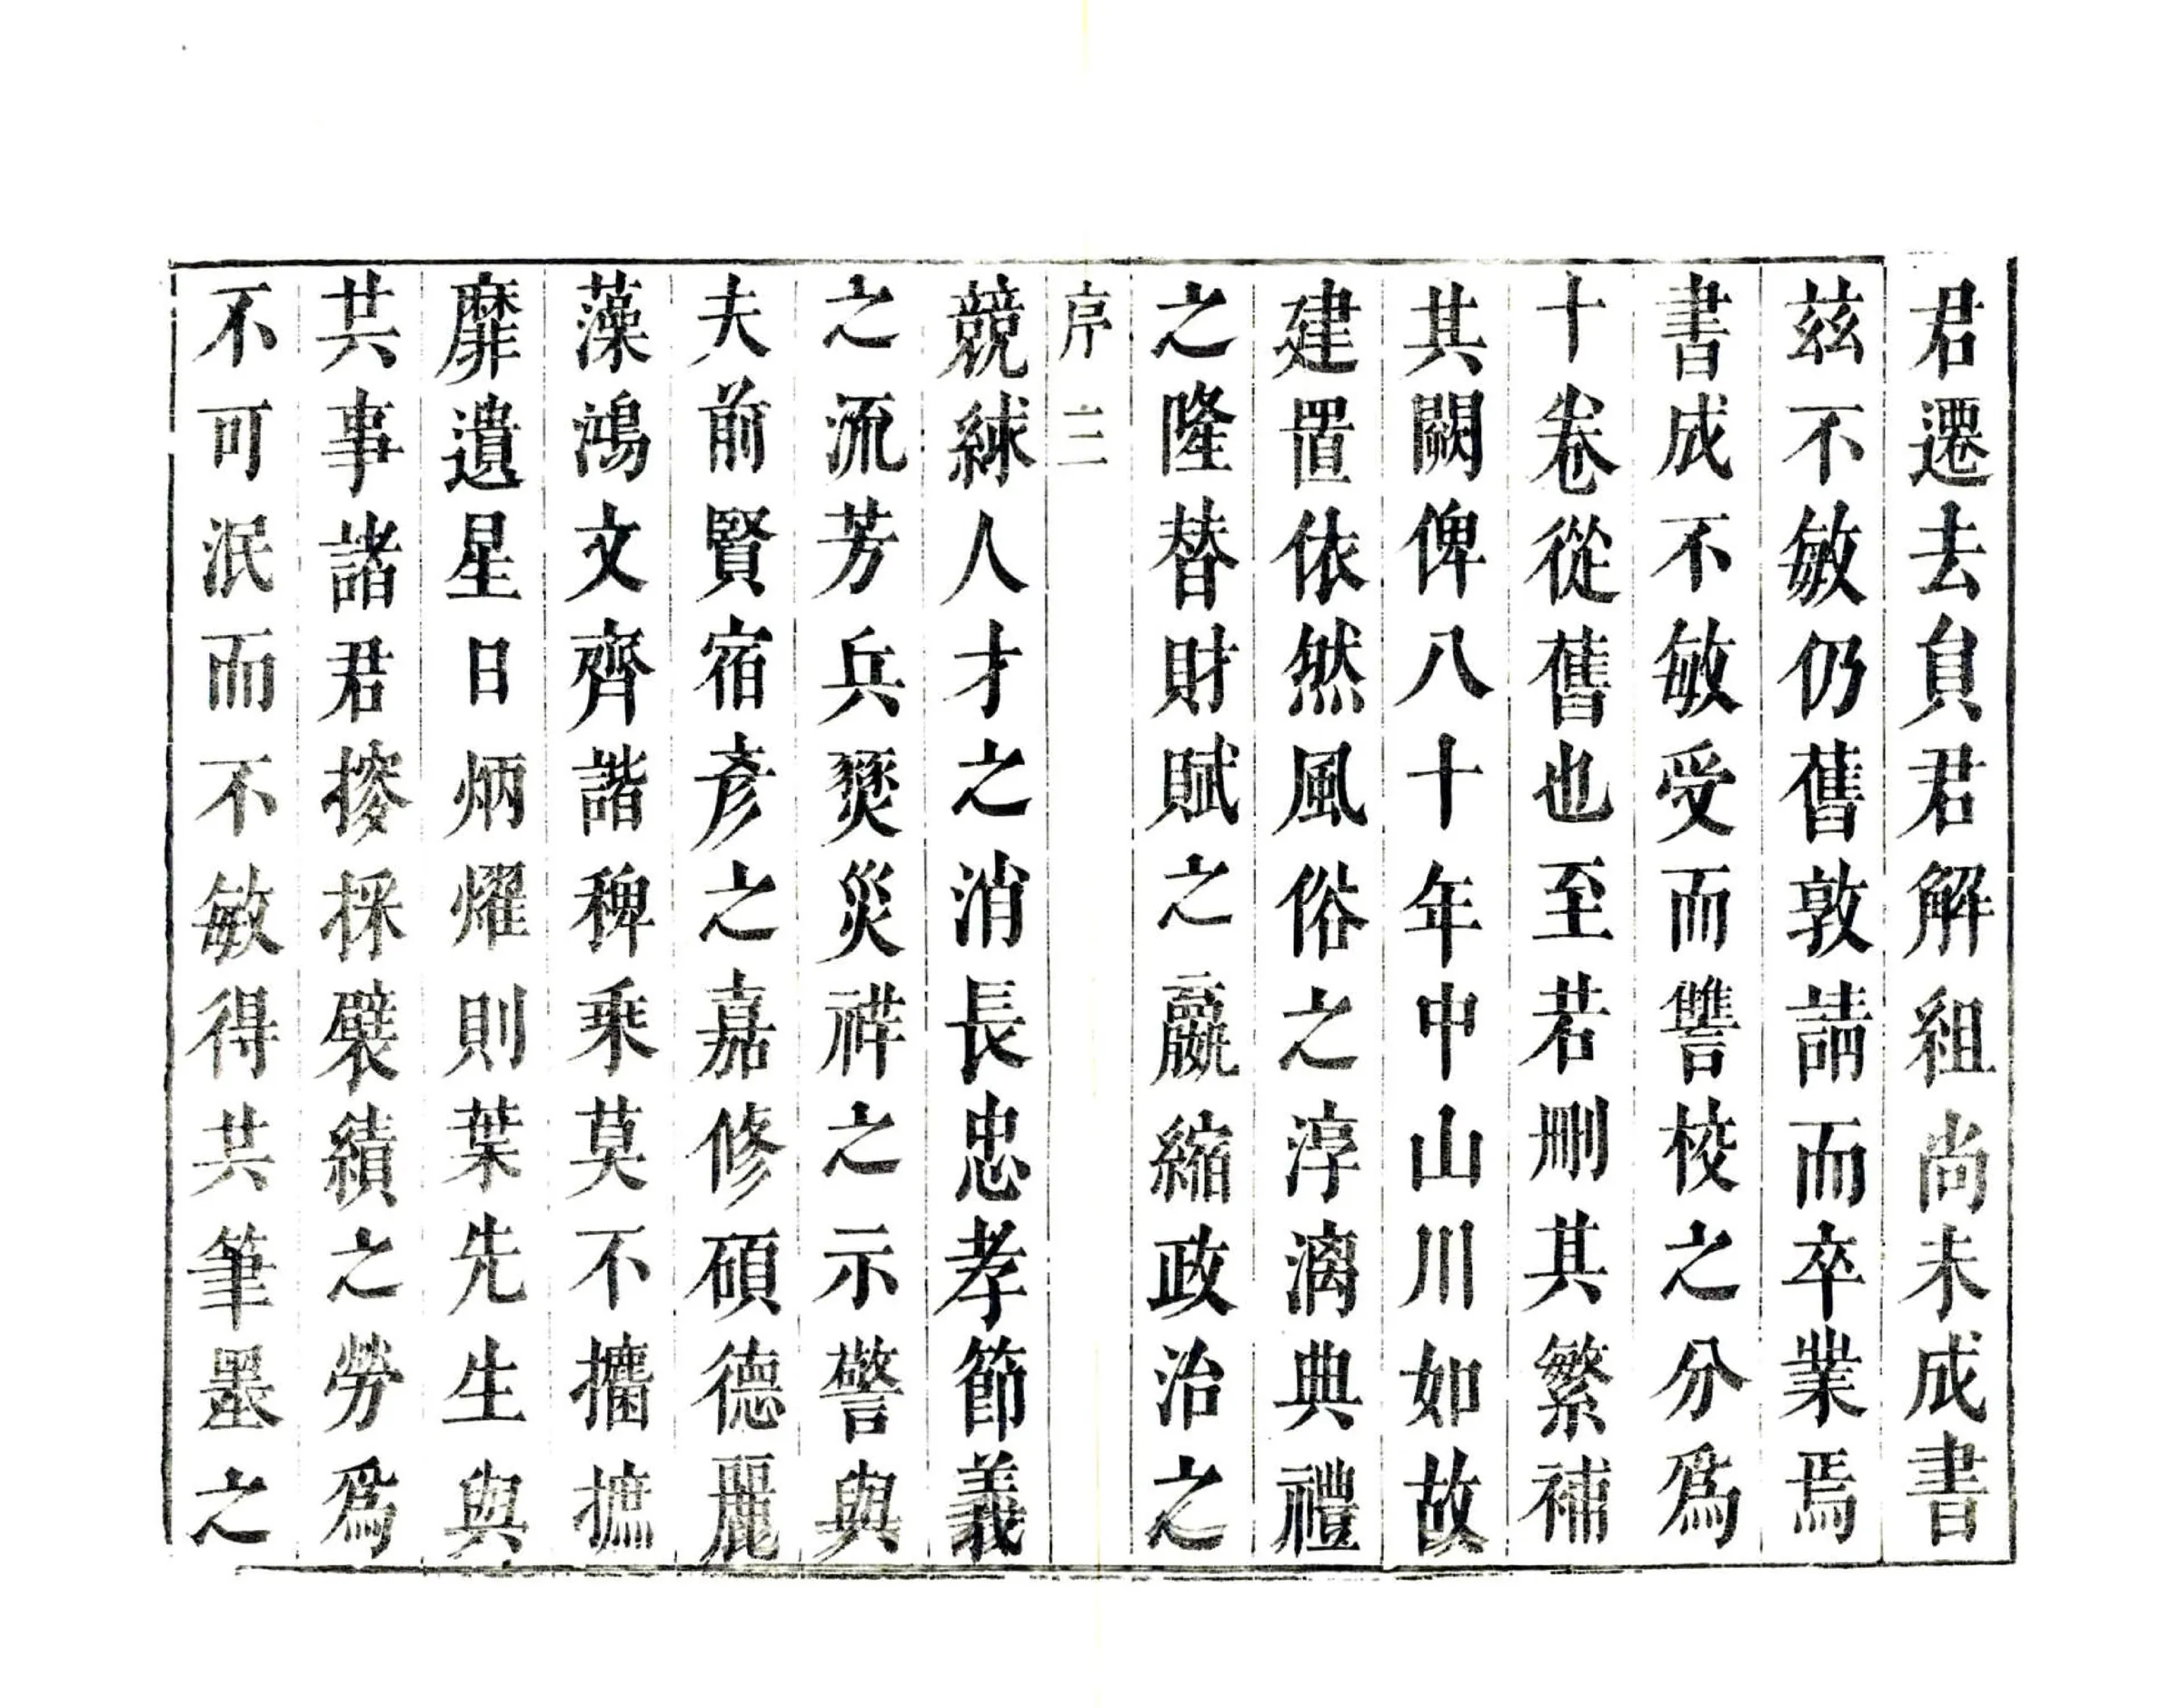 君遷去貟君解組尚未成書
茲不敏仍舊敦請而卒業焉
書成不敏受而讐校之分爲
十卷從舊也至若刪其繁補
其闕俾八十年中山川如故
建置依然風俗之淳漓典禮
之隆替財賦之嬴縮政治之
序 三
競絿人才之消長忠孝節義
之流芳兵燹災祥之示警與
夫前賢宿彥之嘉修碩德麗
藻鴻文齊諧稗乘莫不攟摭
靡遺星日炳燿則葉先生與
共事諸君搜採襞績之勞爲
不可泯而不敏得共筆墨之